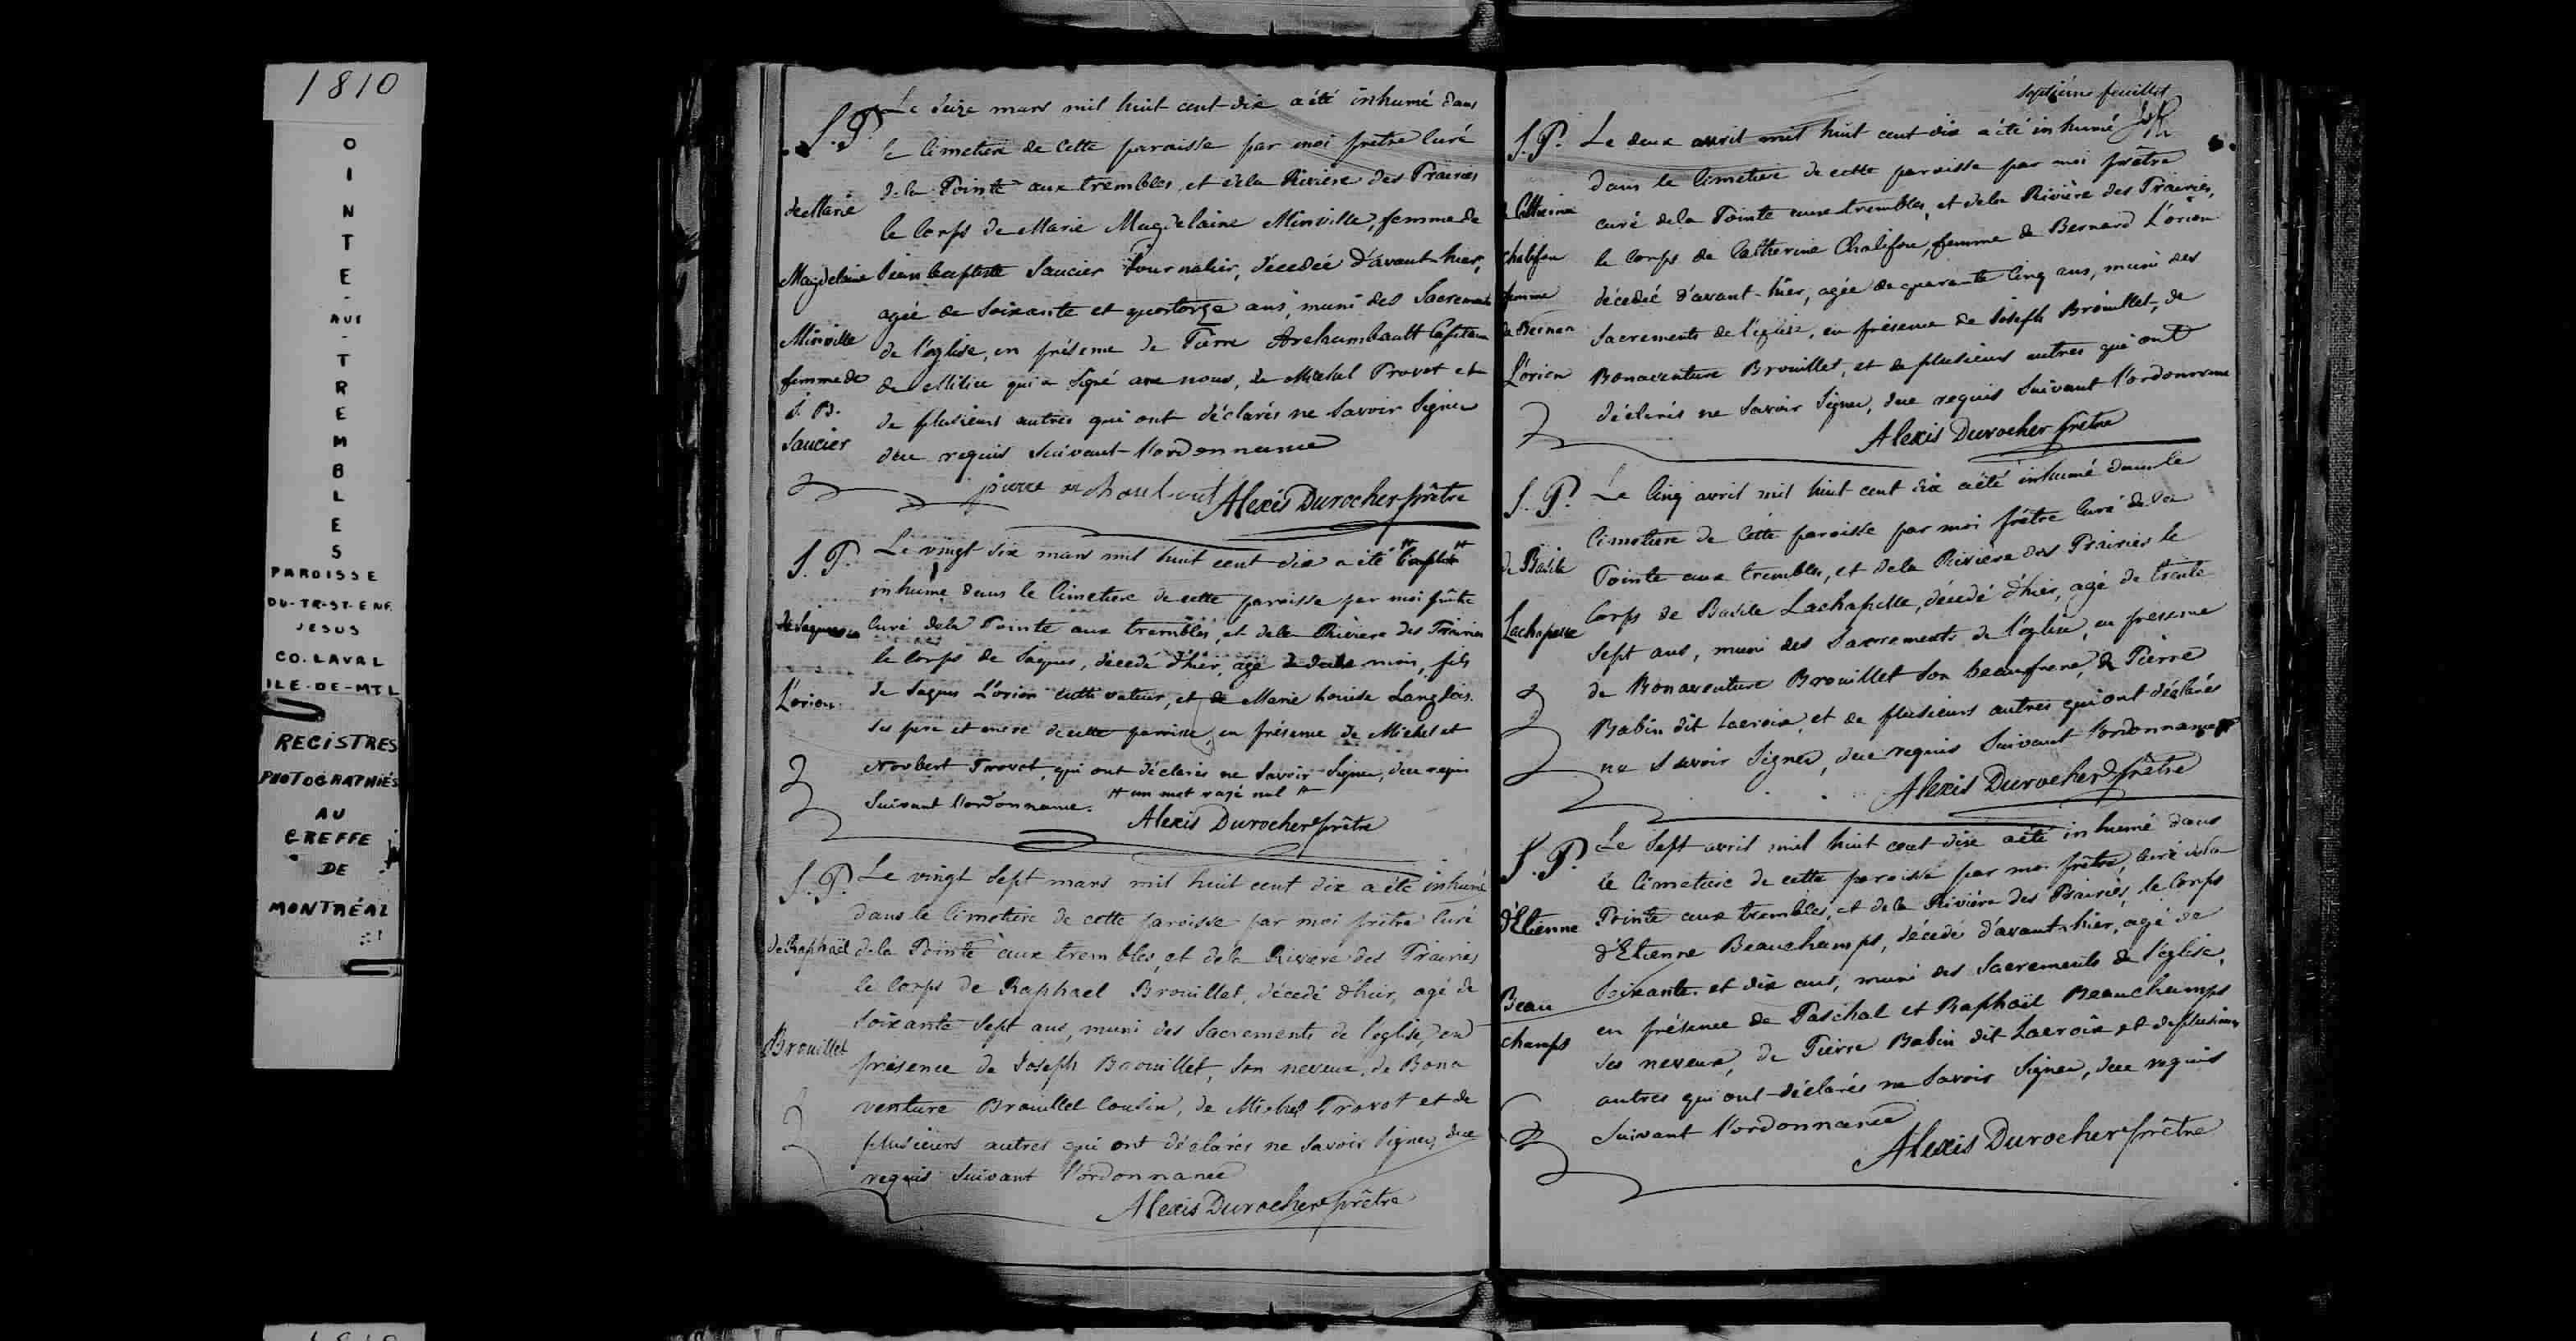 1810
POINTE-AUX-TREMBLES
PAROISSE
DU-TR-ST-ENF.
JESUS
CO. LAVAL
ILE-DE-MTL
REGISTRES
PHOTOGRAPHIÉS
AU
GREFFE
DE
MONTRÉAL
S. P. Le seize mars mil huit cent dix a été inhumé dans
le Cimetiere de cette paroisse par moi prêtre Curé
de la Pointe aux trembles, et dela Riviere des Prairies
de Marie
le Corps de Marie Magdelaine Minville, femme de
Magdelaine
Jean baptiste Saucier Journalier, décedée d'avant-hier,
agée de soixante et quatorze ans, muni des Sacrements
Minville
de l'église, en présence de Pierre Archambault Capitaine
femme de
de Milice qui a signé avec nous, de Michel Provot et
J. B.
de plusieurs autres qui ont déclarés ne savoir signer
Saucier
due requis suivant l'ordonnance
Alexis Durocher prêtre
S. P. Le vingt six mars mil huit cent dix a été
inhumé dans le Cimetiere de cette paroisse par moi prêtre
Curé dela Pointe aux trembles, et dela Riviere des Prairies
de Jaques
le Corps de Jaques, décedé d'hier, agé de mois, fils
L'orion
de Jaques L'orion cultivateur, et de Marie Louise Langlois
ses pere et mere de cette paroisse, en présence de Michel et
Norbert Provot, qui ont déclarés ne savoir signer, due requis
suivant l'ordonnance. # un mot rayé nul #
Alexis Durocher prêtre
S. P. Le vingt sept mars mil huit cent dix a été inhumé
dans le Cimetiere de cette paroisse par moi prêtre Curé
de Raphaël
dela Pointe aux trembles, et dela Riviere des Prairies
le Corps de Raphael Brouillet, décedé d'hier, agé de
soixante sept ans, muni des Sacrements de l'eglise, en
Brouillet
présence de Joseph Brouillet, son neveux, de Bona
venture Brouillet Cousin, de Michel Provot et de
plusieurs autres qui ont déclarés ne savoir signer, due
requis suivant l'ordonnance
Alexis Durocher prêtre
septième feuillet
S. P. Le deux avril mil huit cent dix a été inhumé
dans le Cimetiere de cette paroisse par moi prêtre
Catherine
curé dela Pointe aux trembles, et dela Rivière des Prairies,
le Corps de Catherine Chalifou, femme de Bernard L'orion
Chalifou
décedée d'avant-hier, agée de quarante Cinq ans, muni des
femme
Sacrements de l'eglise, en présence de Joseph Brouillet, de
L'orion
Bonaventure Brouillet, et de plusieurs autres qui ont
déclarés ne savoir signer, due requis suivant l'ordonnance
Alexis Durocher prêtre
S. P. Le Cinq avril mil huit cent dix a été inhumé dans le
Cimetiere de cette paroisse par moi prêtre Curé de la
de Basile
Pointe aux trembles, et dela Riviere des Prairies le
Corps de Basile Lachapelle, décedé d'hier, agé de trente
Lachapelle
sept ans, muni des Sacrements de l'eglise, en presence
de Bonaventure Brouillet son beaufrere, de Pierre
Babin dit Lacroix, et de plusieurs autres qui ont déclarés
ne savoir signer, due requis suivant l'ordonnance
Alexis Durocher prêtre
S. P. Le sept avril mil huit cent dix a été inhumé dans
le Cimetiere de cette paroisse par moi prêtre, Curé dela
d'Etienne
Pointe aux trembles, et dela Riviére des Prairies, le Corps
d'Etienne Beauchamps, décedé d'avant-hier, agé de
soixante et dix ans, muni des Sacrements de l'église,
Beau
en présence de Paschal et Raphaël Beauchamps
champs
ses neveux, de Pierre Babin dit Lacroix et de plusieurs
autres qui ont déclarés ne savoir signer, due requis
suivant l'ordonnance
Alexis Durocher prêtre